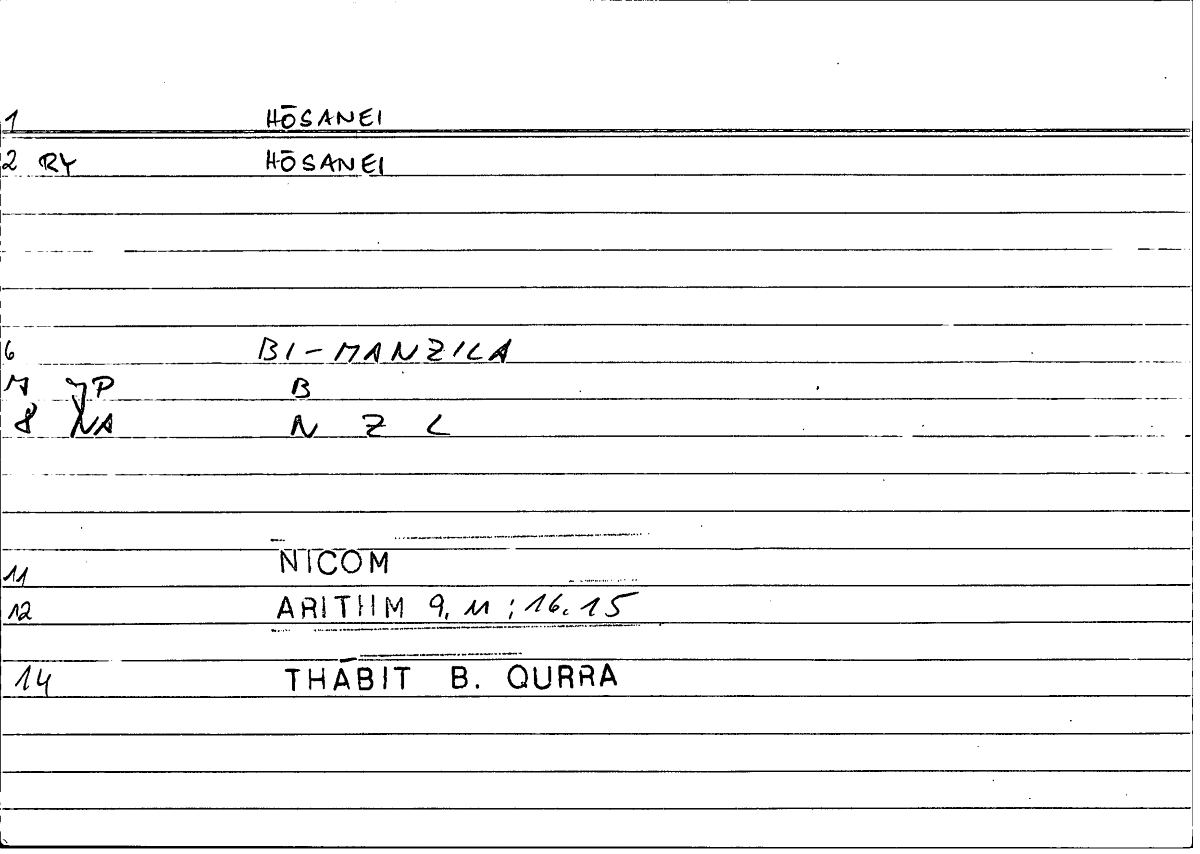 1 HŌSANEI
2 RY HŌSANEI
6 BI-MANZILA
7 JP B
8 NA N Z L
11 NICOM
12 ARITHM 9, 11 ; 16.15
14 THĀBIT B. QURRA